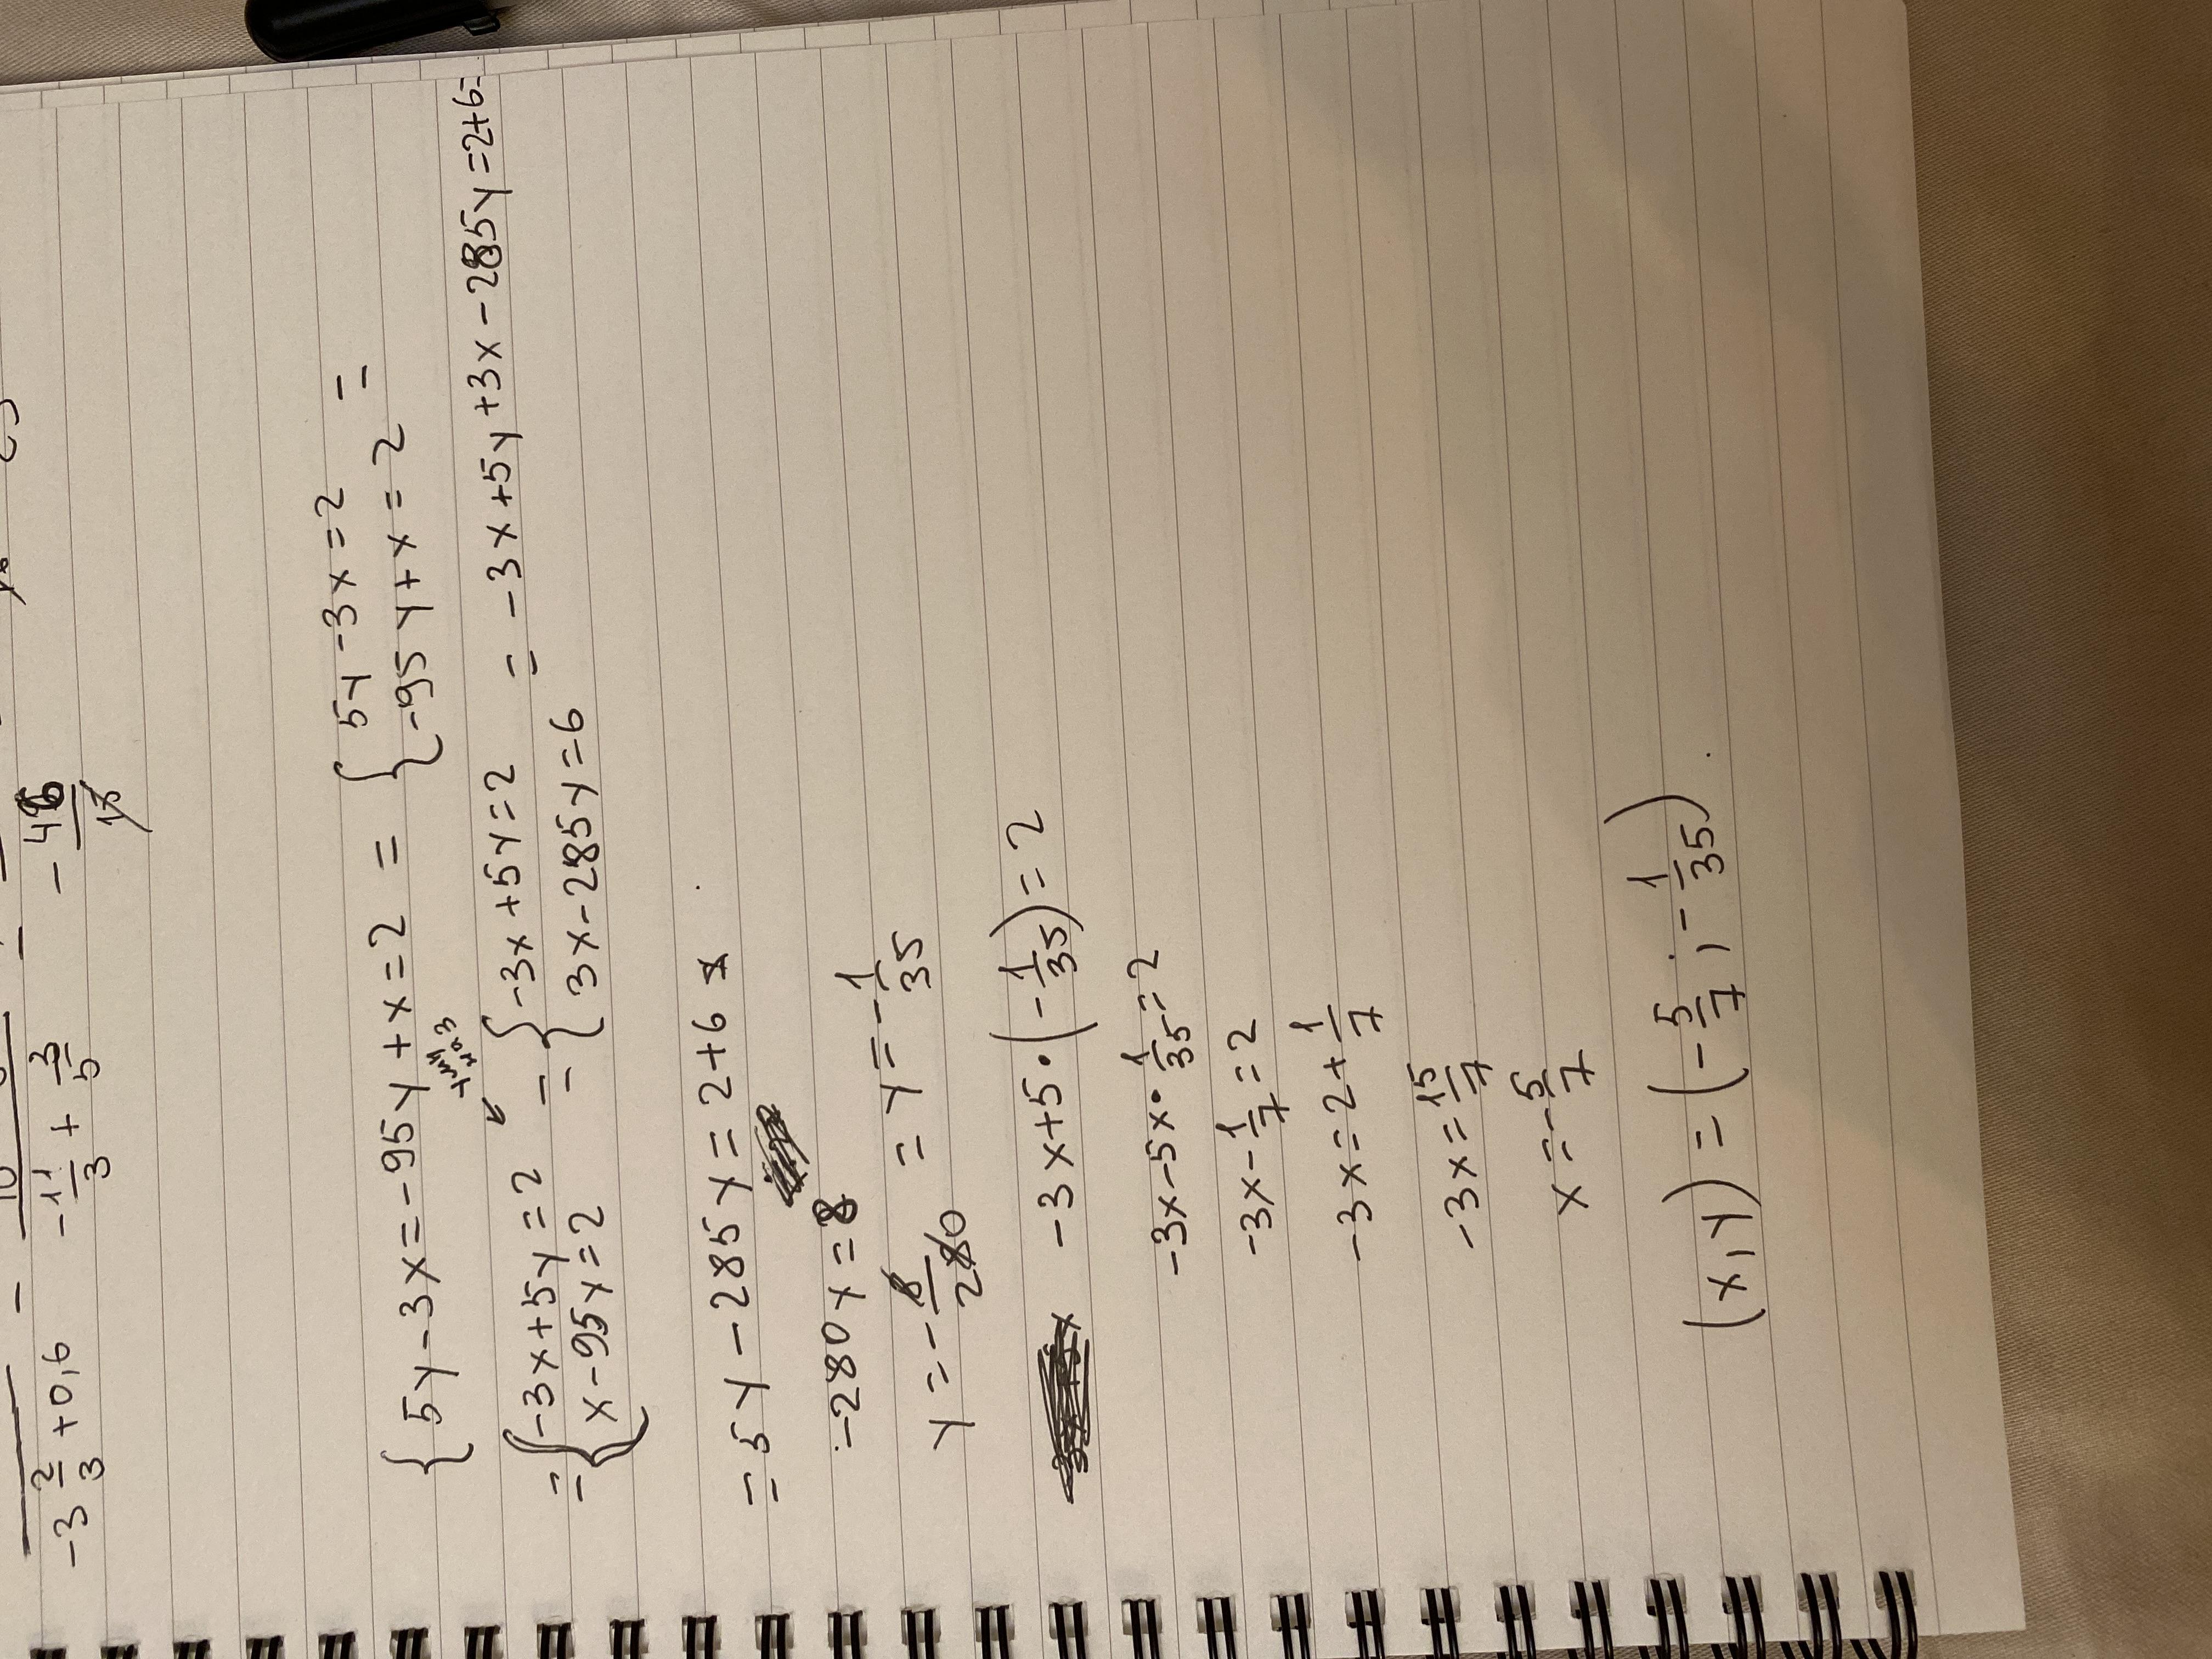 -3 2/3 + 0,6 -11/3 + 3/5 - 46/15
{ 5y - 3x = -95y + x = 2 = { 5y - 3x = 2 =
-95y + x = 2 =
= { -3x + 5y = 2 = { -3x + 5y = 2 = -3x + 5y + 3x - 285y = 2 + 6 =
x - 95y = 2 3x - 285y = 6
= 5y - 285y = 2 + 6
-280y = 8
y = - 8/280 = y = - 1/35
-3x + 5 · (- 1/35) = 2
-3x - 5x · 1/35 = 2
-3x - 1/7 = 2
-3x = 2 + 1/7
-3x = 15/7
x = - 5/7
(x, y) = (- 5/7 ; - 1/35)